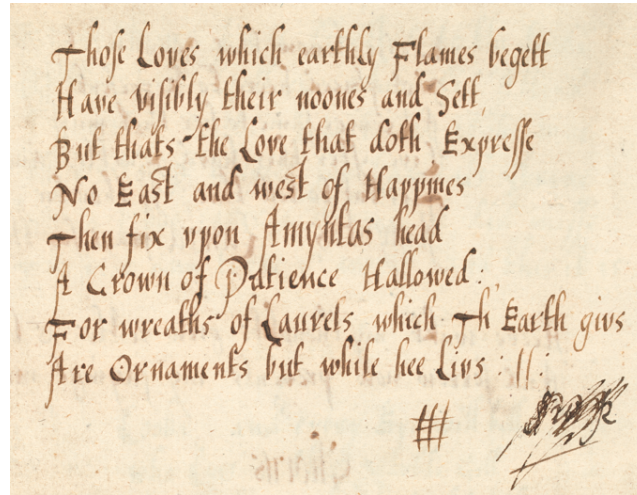 Those Loves which earthly Flames begett
Have visibly their noones and Sett,
But thats the Love that doth Expresse
No East and west of Happines
Then fix vpon Amyntas head
A Crown of Patience Hallowed :
For wreaths of Laurels which Th Earth givs
Are Ornaments but while hee Livs : || :